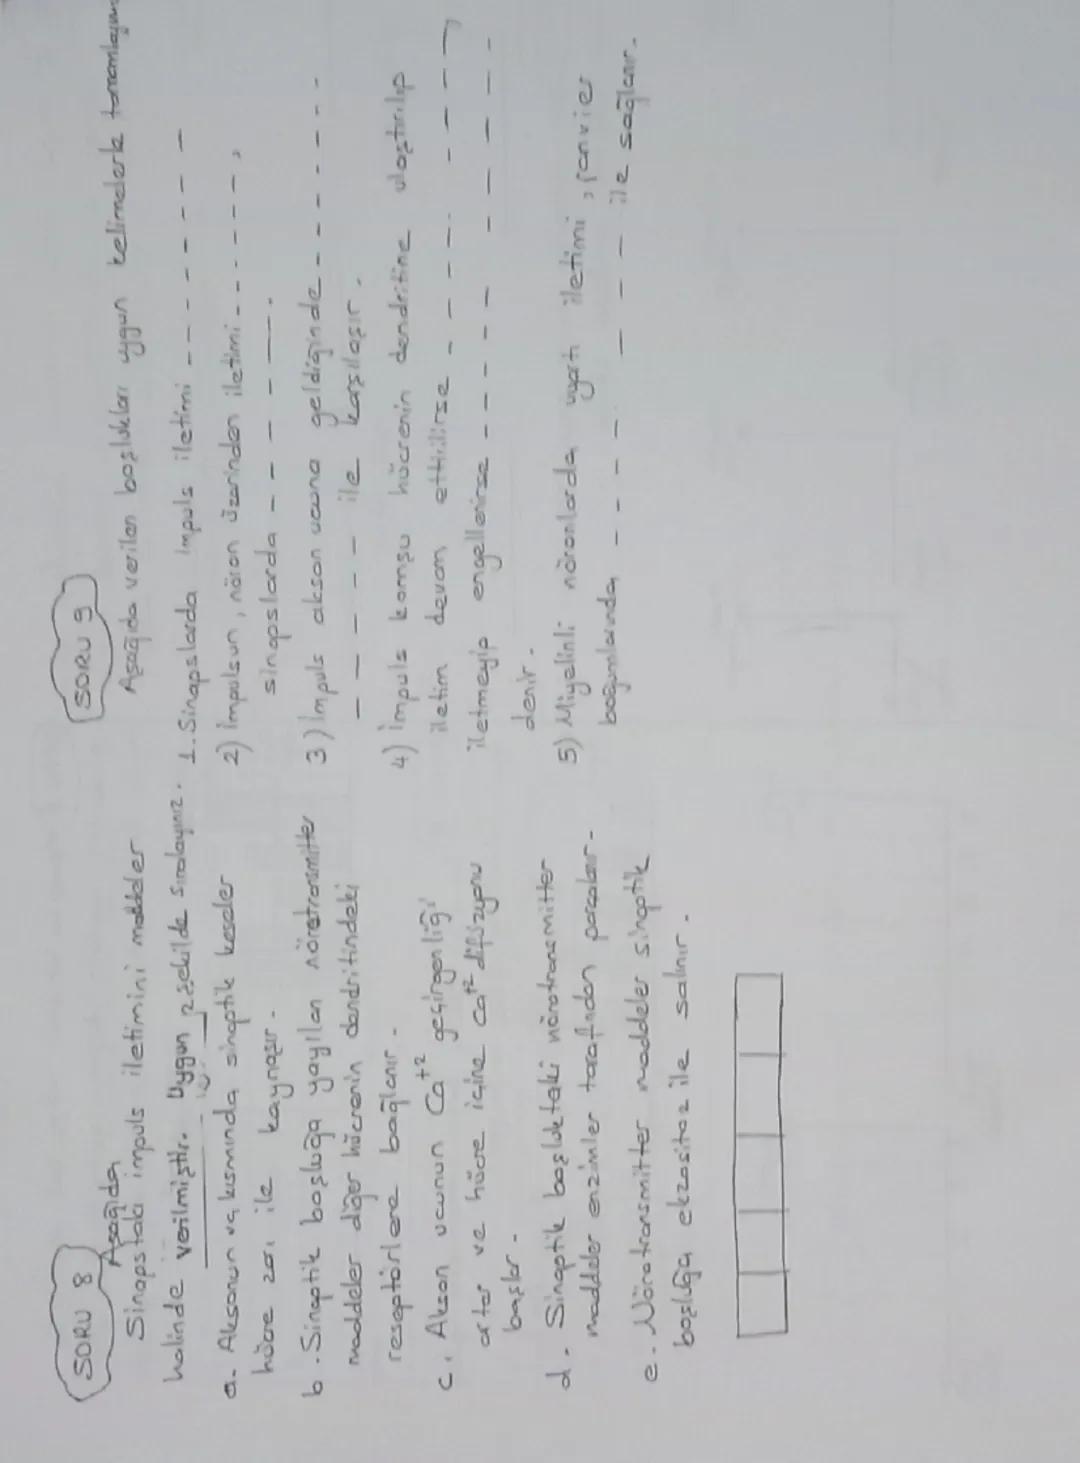 SORU 8
Aşağıda
Sinapstaki impuls iletimini maddeler
halinde verilmiştir. Uygun şekilde sıralayınız.
a. Aksonun uç kısmında sinaptik keseler
hücre zarı ile kaynaşır.
b. Sinaptik boşluğa yayılan nörotransmitter
maddeler diğer hücrenin dendritindeki
reseptörlere bağlanır.
c. Akson ucunun Ca+2 geçirgenliği
artar ve hücre içine Ca+2 difüzyonu
başlar.
d. Sinaptik boşluktaki nörotransmitter
maddeler enzimler tarafından parçalanır.
e. Nörotransmitter maddeler sinaptik
boşluğa ekzositoz ile salınır.
SORU 9
Aşağıda verilen boşlukları uygun kelimelerle tamamlayınız
1. Sinapslarda impuls iletimi - - - - - - - -
2) İmpulsun, nöron üzerinden iletimi - - - - - - -,
sinapslarda - - - - - -.
3) İmpuls akson ucuna geldiğinde - - - - - - -
- - - - - ile karşılaşır.
4) İmpuls komşu hücrenin dendritine ulaştırılıp
iletim devam ettirilirse - - - - - - - - -,
iletmeyip engellenirse - - - - - - - - - -
denir.
5) Miyelinli nöronlarda uyartı iletimi, ranvier
boğumlarında - - - - - - - ile sağlanır.